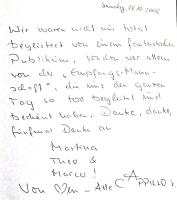 Samstag, 16.10.2002
Wir waren nicht nur total
begeistert von Einem fantastischen
Publikum, sondern vor allem
von der „Empfangs-Mann-
schaft", die uns den ganzen
Tag so toll begleitet und
betreut haben. Danke, danke,
fünfmal Danke an
Martina
Theo &
Marco!
Von den - Alte